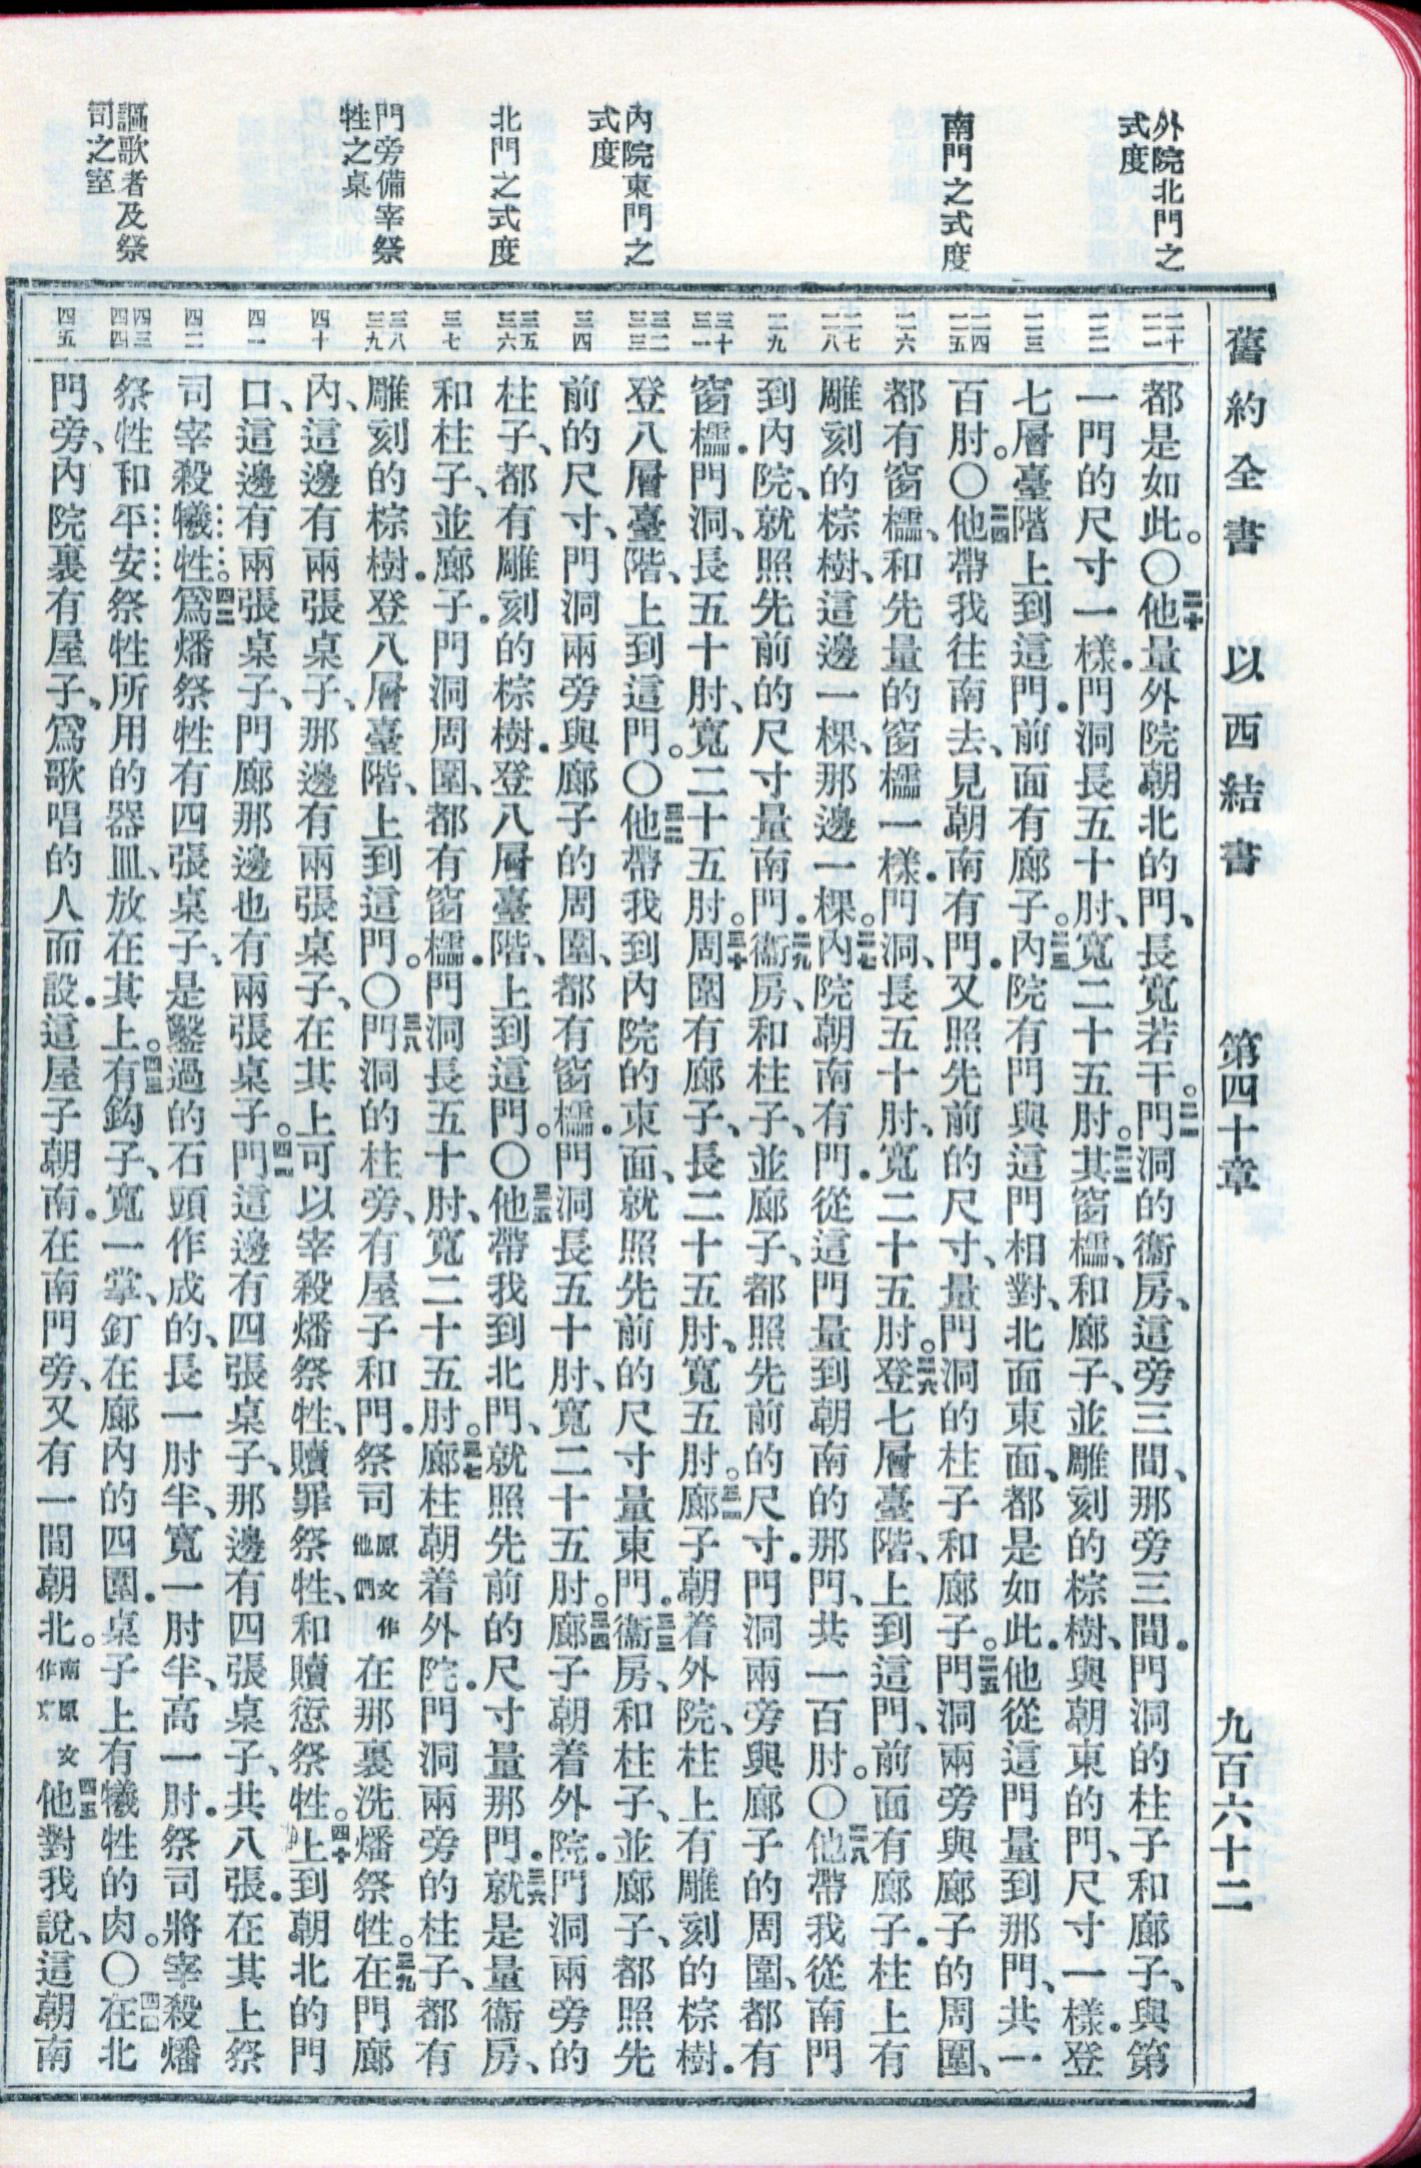 舊約全書 以西結書 第四十章 九百六十二
外院北門之
式度
南門之式度
內院東門之
式度
北門之式度
門旁備宰祭
牲之桌
謳歌者及祭
司之室
二十 二一
二二
二三
二四 二五
二六
二七 二八
二九
三十 三一
三二 三三
三四
三五 三六
三七
三八 三九
四十
四一
四二
四三 四四
四五
都是如此。〇二十他量外院朝北的門、長寬若干。二一門洞的衞房、這旁三間、那旁三間．門洞的柱子和廊子、與第
一門的尺寸一樣．門洞長五十肘、寬二十五肘。二二其窗櫺、和廊子、並雕刻的棕樹、與朝東的門、尺寸一樣．登
七層臺階上到這門．前面有廊子。二三內院有門與這門相對、北面東面、都是如此．他從這門量到那門、共一
百肘。〇二四他帶我往南去、見朝南有門．又照先前的尺寸、量門洞的柱子和廊子。二五門洞兩旁與廊子的周圍、
都有窗櫺、和先量的窗櫺一樣．門洞、長五十肘、寬二十五肘。二六登七層臺階、上到這門、前面有廊子．柱上有
雕刻的棕樹、這邊一棵、那邊一棵。二七內院朝南有門．從這門量到朝南的那門、共一百肘。〇二八他帶我從南門
到內院、就照先前的尺寸量南門．二九衞房、和柱子、並廊子、都照先前的尺寸．門洞兩旁與廊子的周圍、都有
窗櫺．門洞、長五十肘、寬二十五肘。三十周圍有廊子、長二十五肘、寬五肘。三一廊子朝着外院、柱上有雕刻的棕樹．
登八層臺階、上到這門。〇三二他帶我到內院的東面、就照先前的尺寸量東門．三三衞房、和柱子、並廊子、都照先
前的尺寸、門洞兩旁與廊子的周圍、都有窗櫺．門洞長五十肘、寬二十五肘。三四廊子朝着外院．門洞兩旁的
柱子、都有雕刻的棕樹．登八層臺階、上到這門。〇三五他帶我到北門、就照先前的尺寸量那門．三六就是量衞房、
和柱子、並廊子．門洞周圍、都有窗櫺．門洞長五十肘、寬二十五肘。三七廊柱朝着外院．門洞兩旁的柱子、都有
雕刻的棕樹．登八層臺階、上到這門。〇三八門洞的柱旁、有屋子和門．祭司原文作他們在那裏洗燔祭牲。三九在門廊
內、這邊有兩張桌子、那邊有兩張桌子、在其上可以宰殺燔祭牲、贖罪祭牲、和贖愆祭牲。四十上到朝北的門
口、這邊有兩張桌子、門廊那邊也有兩張桌子。四一門這邊有四張桌子、那邊有四張桌子、共八張．在其上祭
司宰殺犧牲。四二爲燔祭牲有四張桌子、是鑿過的石頭作成的、長一肘半、寬一肘半、高一肘．祭司將宰殺燔
祭牲和平安祭牲所用的器皿、放在其上。四三有鈎子、寬一掌、釘在廊內的四圍．桌子上有犧牲的肉。〇四四在北
門旁、內院裏有屋子、爲歌唱的人而設．這屋子朝南．在南門旁、又有一間朝北。南原文作東四五他對我說、這朝南